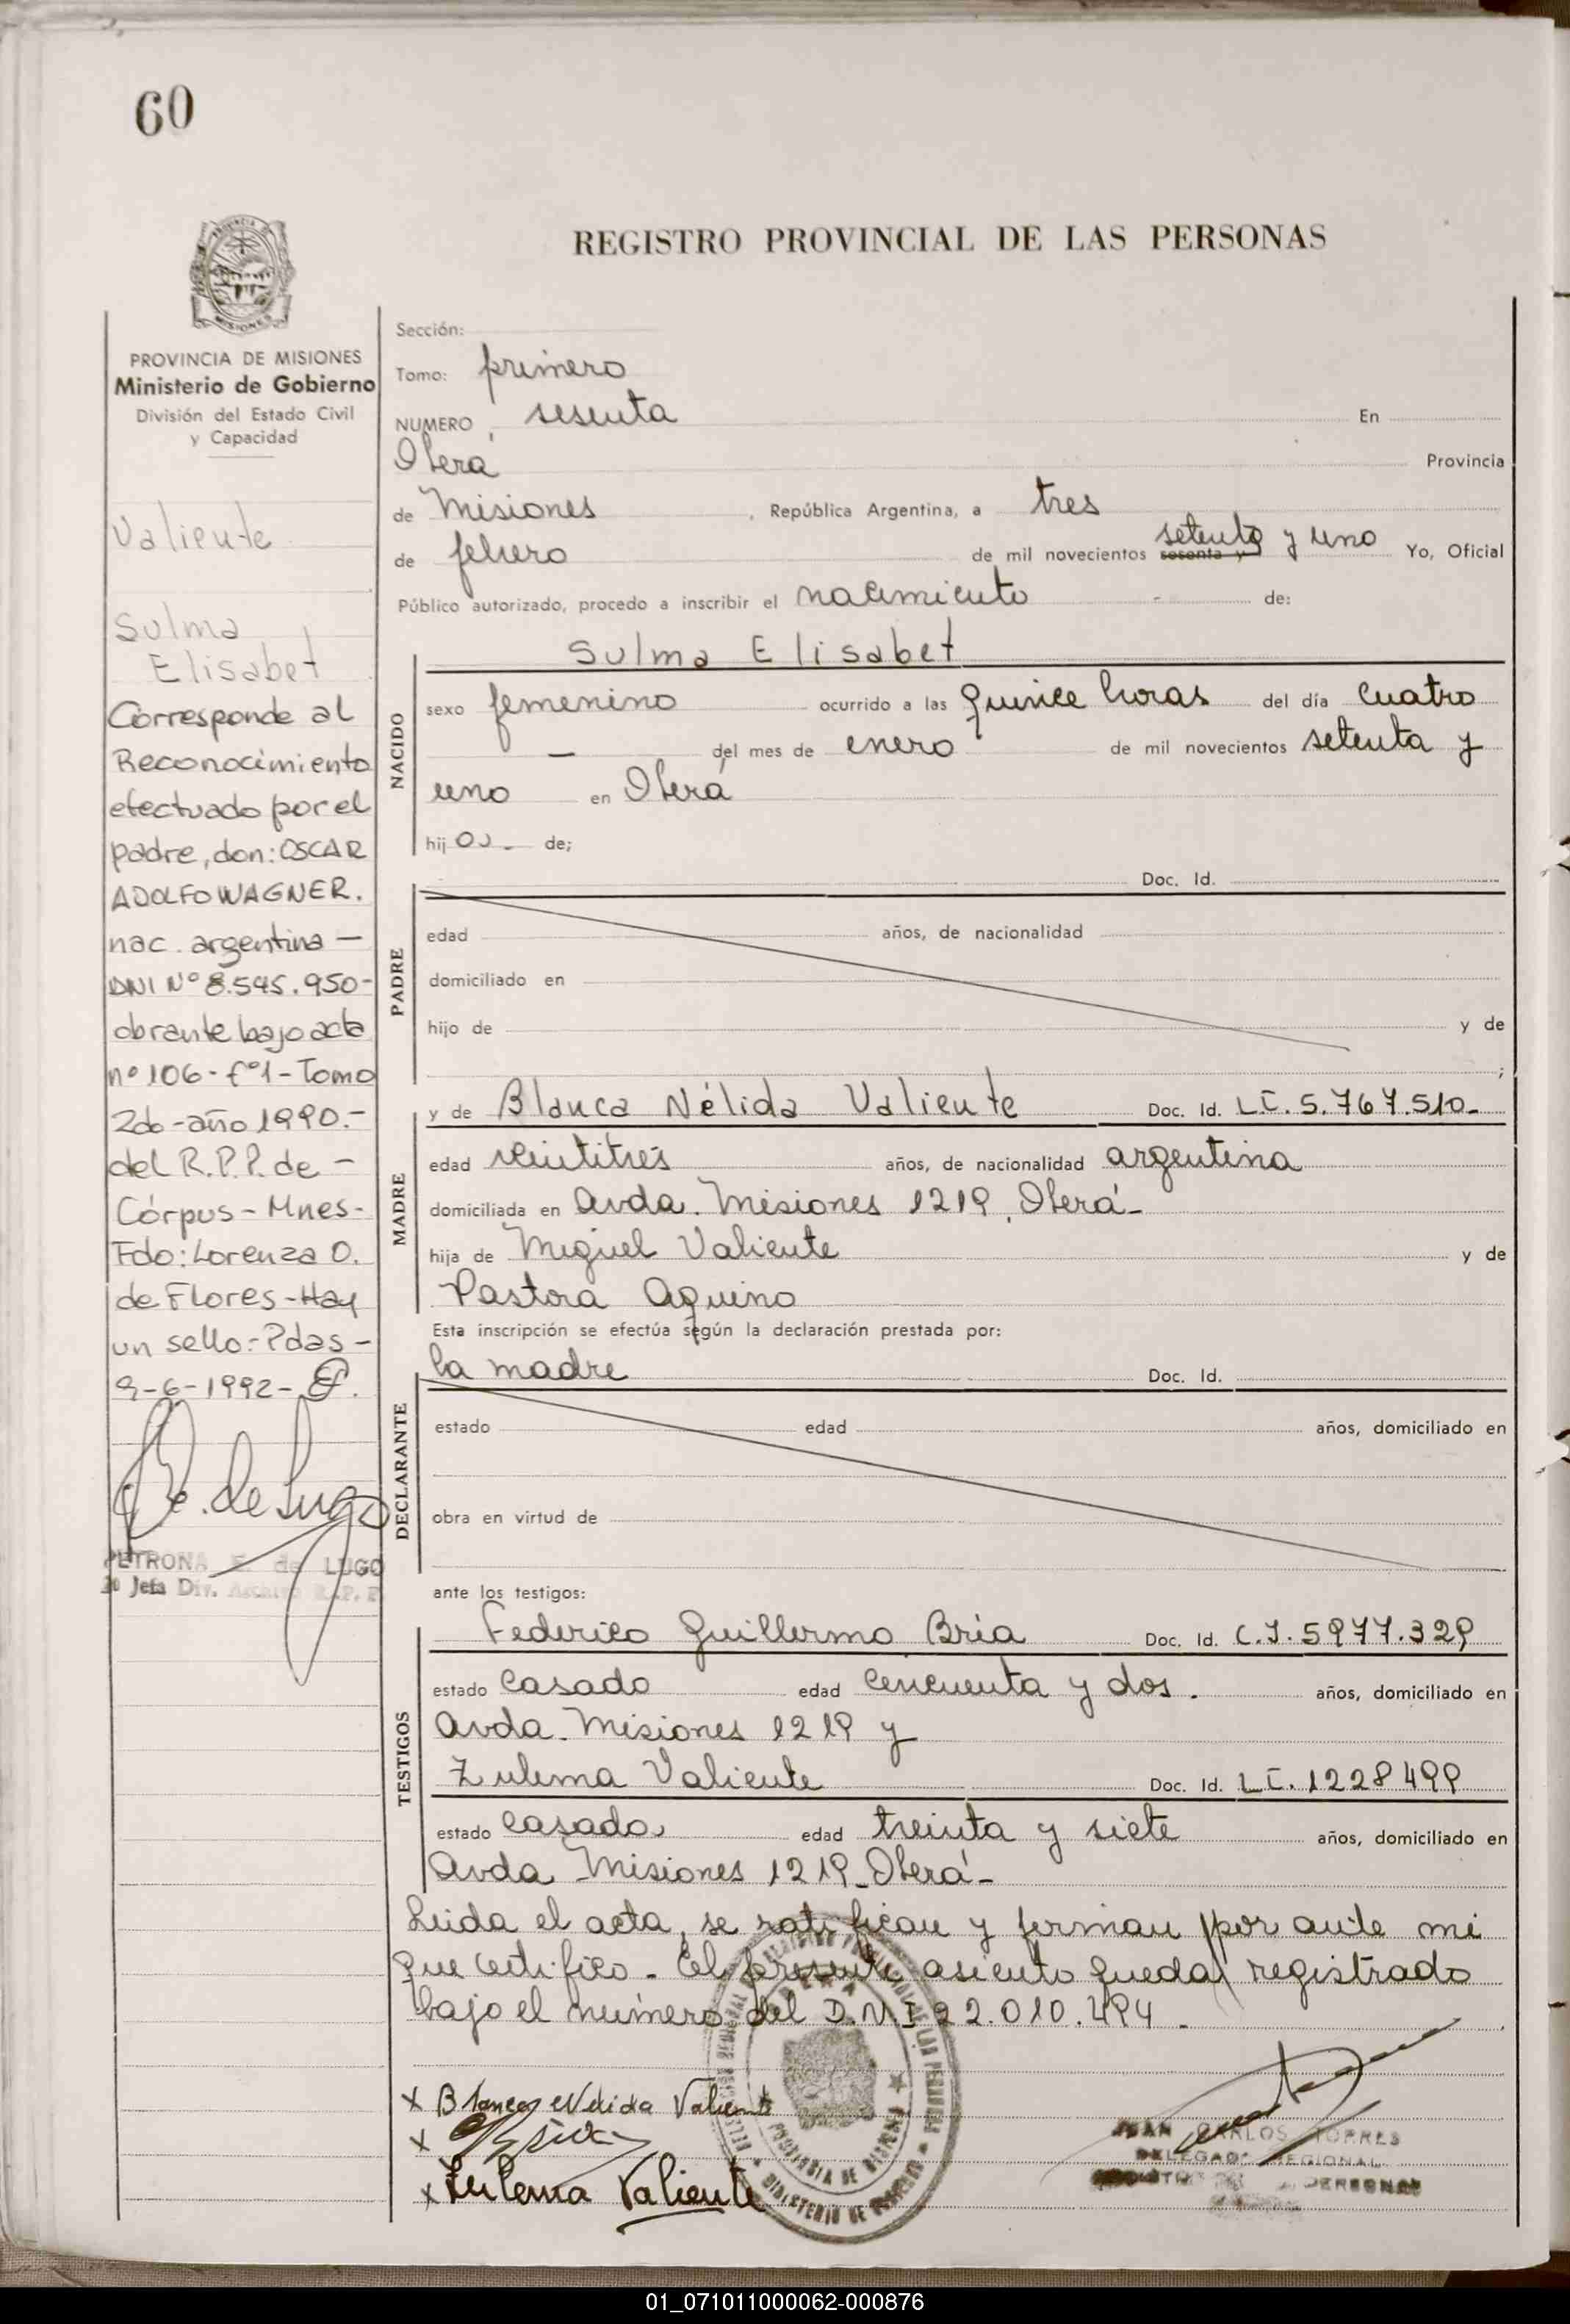 60
REGISTRO PROVINCIAL DE LAS PERSONAS
PROVINCIA DE MISIONES
Ministerio de Gobierno
División del Estado Civil
y Capacidad
Valiente
Sulma
Elisabet
Corresponde al
Reconocimiento
efectuado por el
padre, don: OSCAR
ADOLFO WAGNER.
nac. argentina —
DNI Nº 8.545.950-
obrante bajo acta
nº 106 - fº1 - Tomo
2do - año 1990.-
del R.P.P. de -
Córpus - Mnes-
Fdo: Lorenza O.
de Flores - Hay
un sello:- Pdas -
9-6-1992-
E. de Lugo
PETRONA E. de LUGO
Jefa Div. Archivo R.P.P.
Sección:
Tomo: primero
NUMERO sesenta En
Oberá Provincia
de Misiones , República Argentina, a tres
de febrero de mil novecientos sesenta y setenta y uno Yo, Oficial
Público autorizado, procedo a inscribir el nacimiento de:
Sulma Elisabet
NACIDO
sexo femenino ocurrido a las quince horas del día cuatro
— del mes de enero de mil novecientos setenta y
uno en Oberá
hij de;
Doc. Id.
PADRE
edad años, de nacionalidad
domiciliado en
hijo de y de
;
y de Blanca Nélida Valiente Doc. Id. L.C. 5.767.510-
MADRE
edad veintitrés años, de nacionalidad argentina
domiciliada en Avda. Misiones 1219, Oberá-
hija de Miguel Valiente y de
Pastora Aquino
Esta inscripción se efectúa según la declaración prestada por:
la madre Doc. Id.
DECLARANTE
estado edad años, domiciliado en
obra en virtud de
ante los testigos:
Federico Guillermo Bría Doc. Id. C.I. 5977.329
TESTIGOS
estado casado edad cincuenta y dos. años, domiciliado en
Avda. Misiones 1219 y
Zulema Valiente Doc. Id. L.C. 1228499
estado casada edad treinta y siete años, domiciliado en
Avda. Misiones 1219-Oberá-
Leida el acta, se ratifican y firman por ante mi
que certifico. El presente asiento queda registrado
bajo el número del D.N.I 22.010.494 -
x Blanca Nelida Valiente
x
x Zulema Valiente
JUAN CARLOS TORRES
DELEGADO REGIONAL
01_071011000062-000876